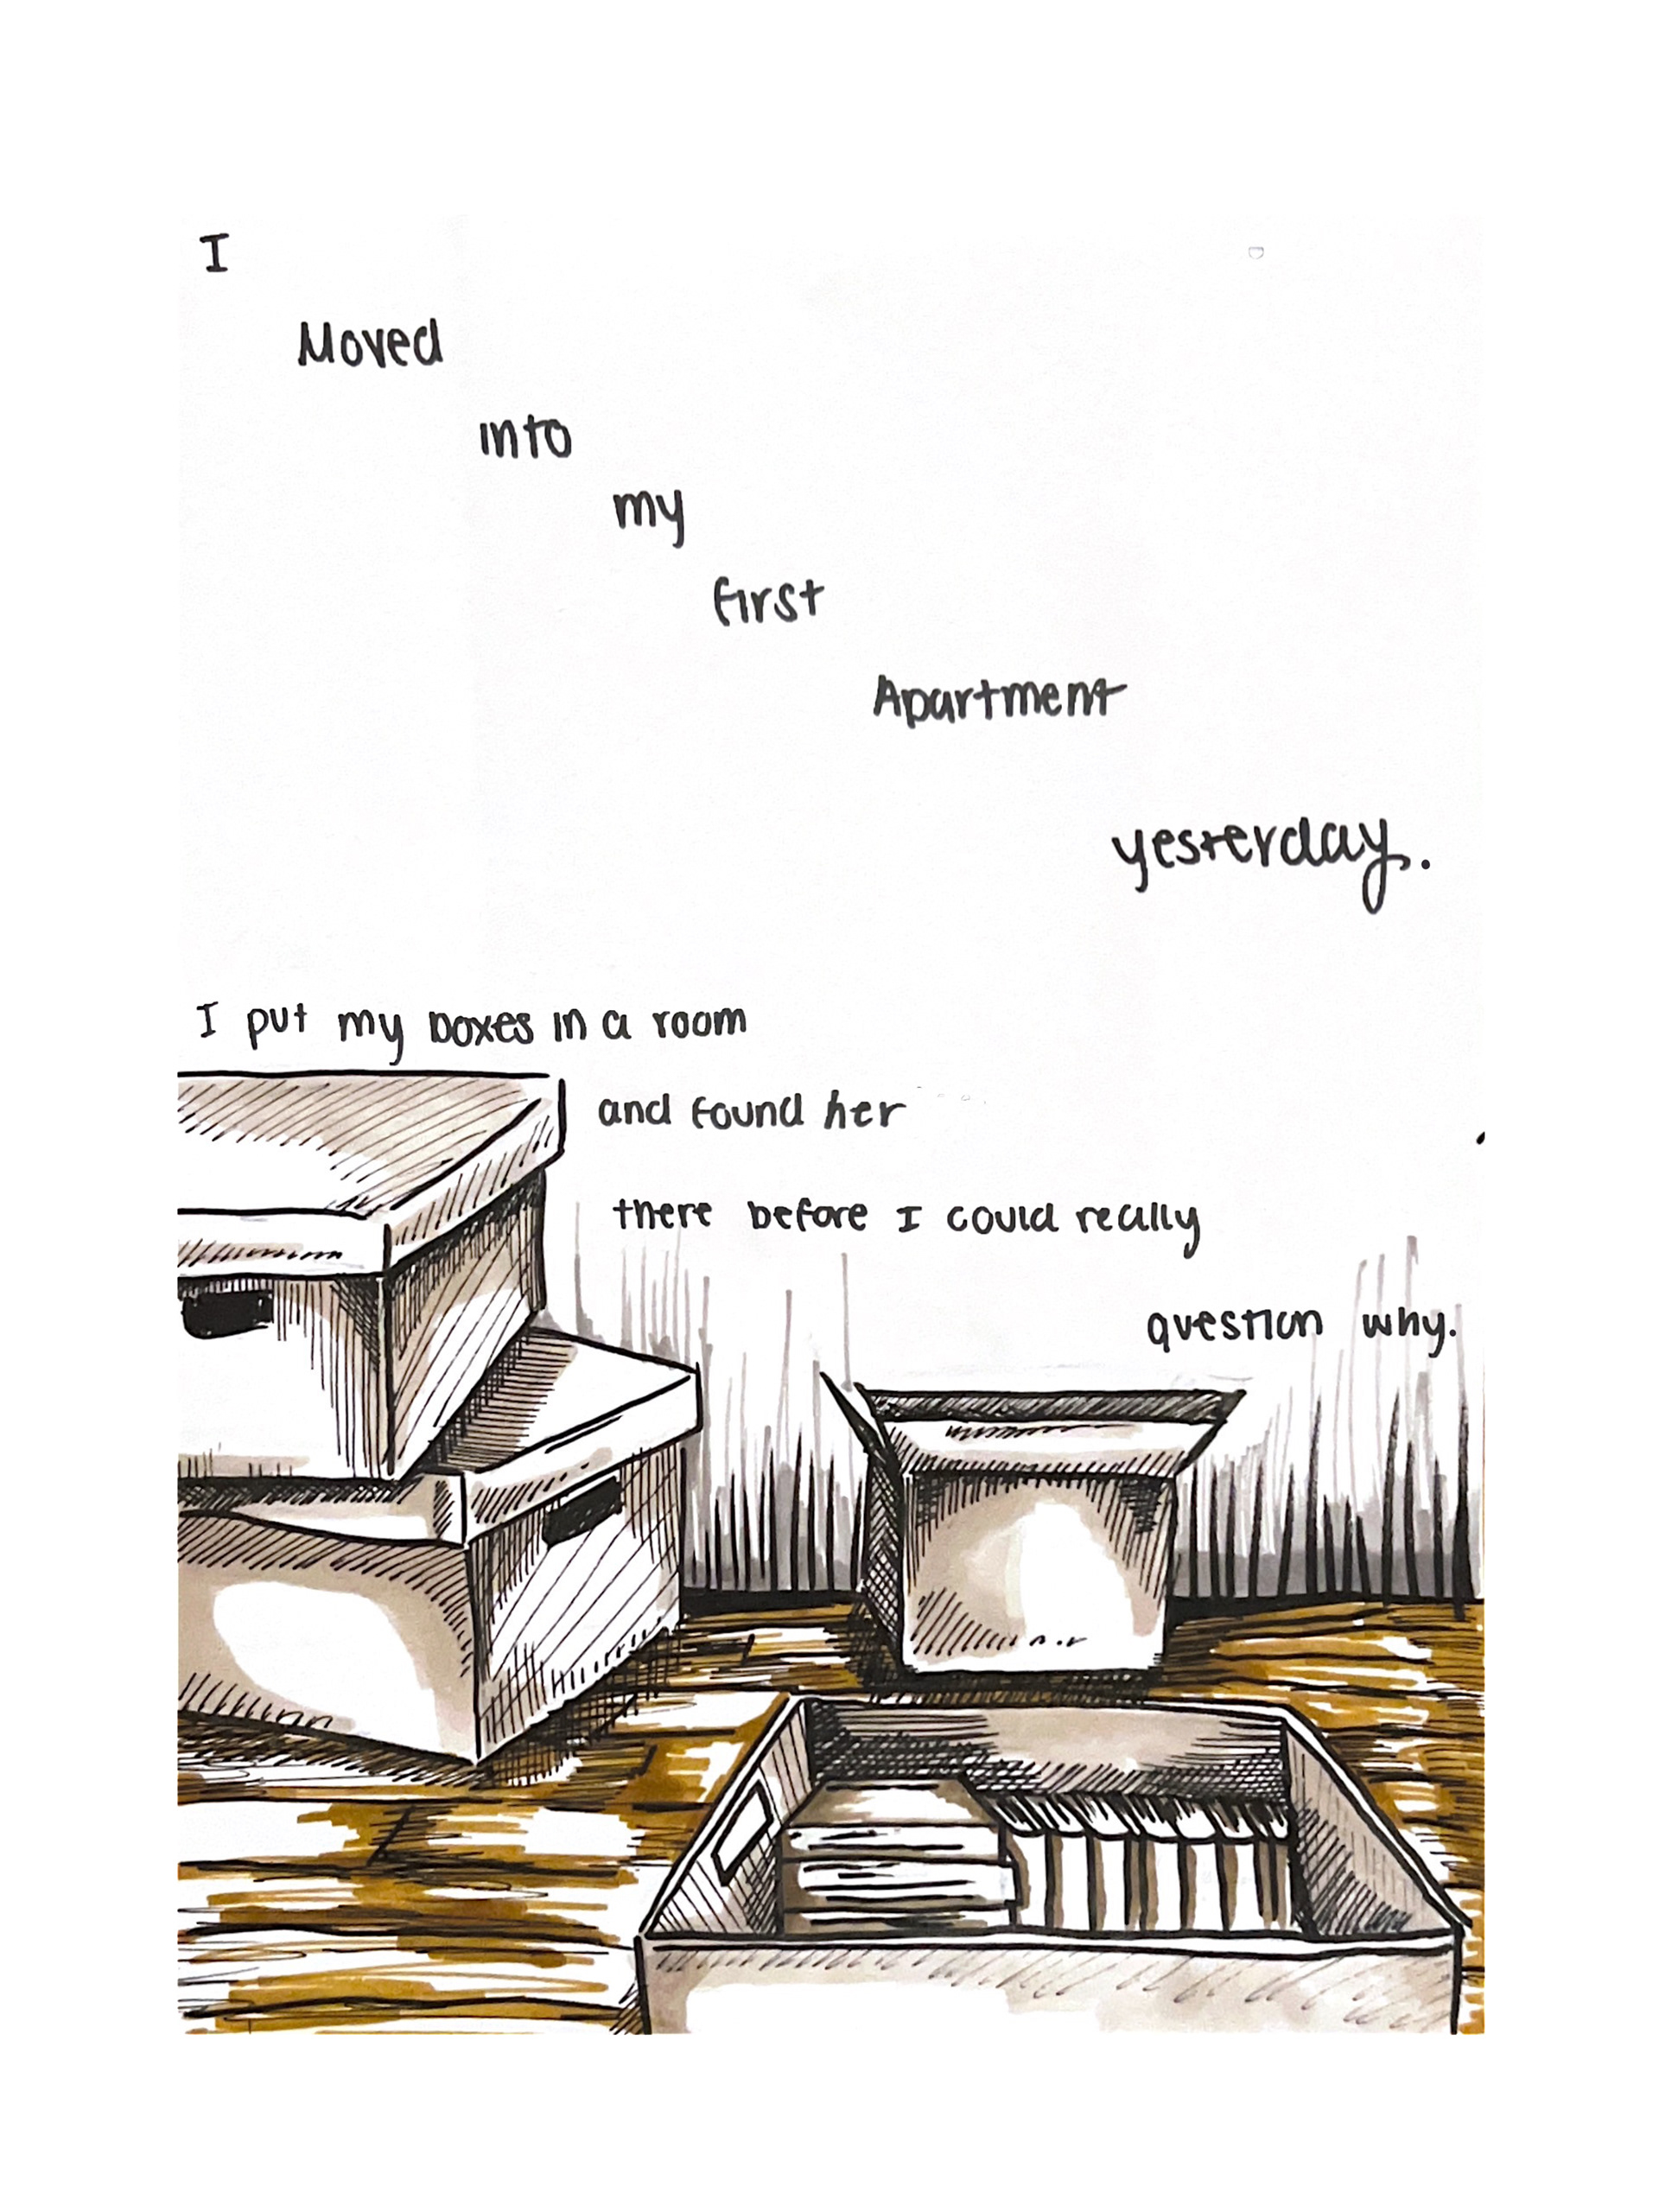 I
Moved
into
my
first
Apartment
yesterday.
I put my boxes in a room
and found her
there before I could really
question why.